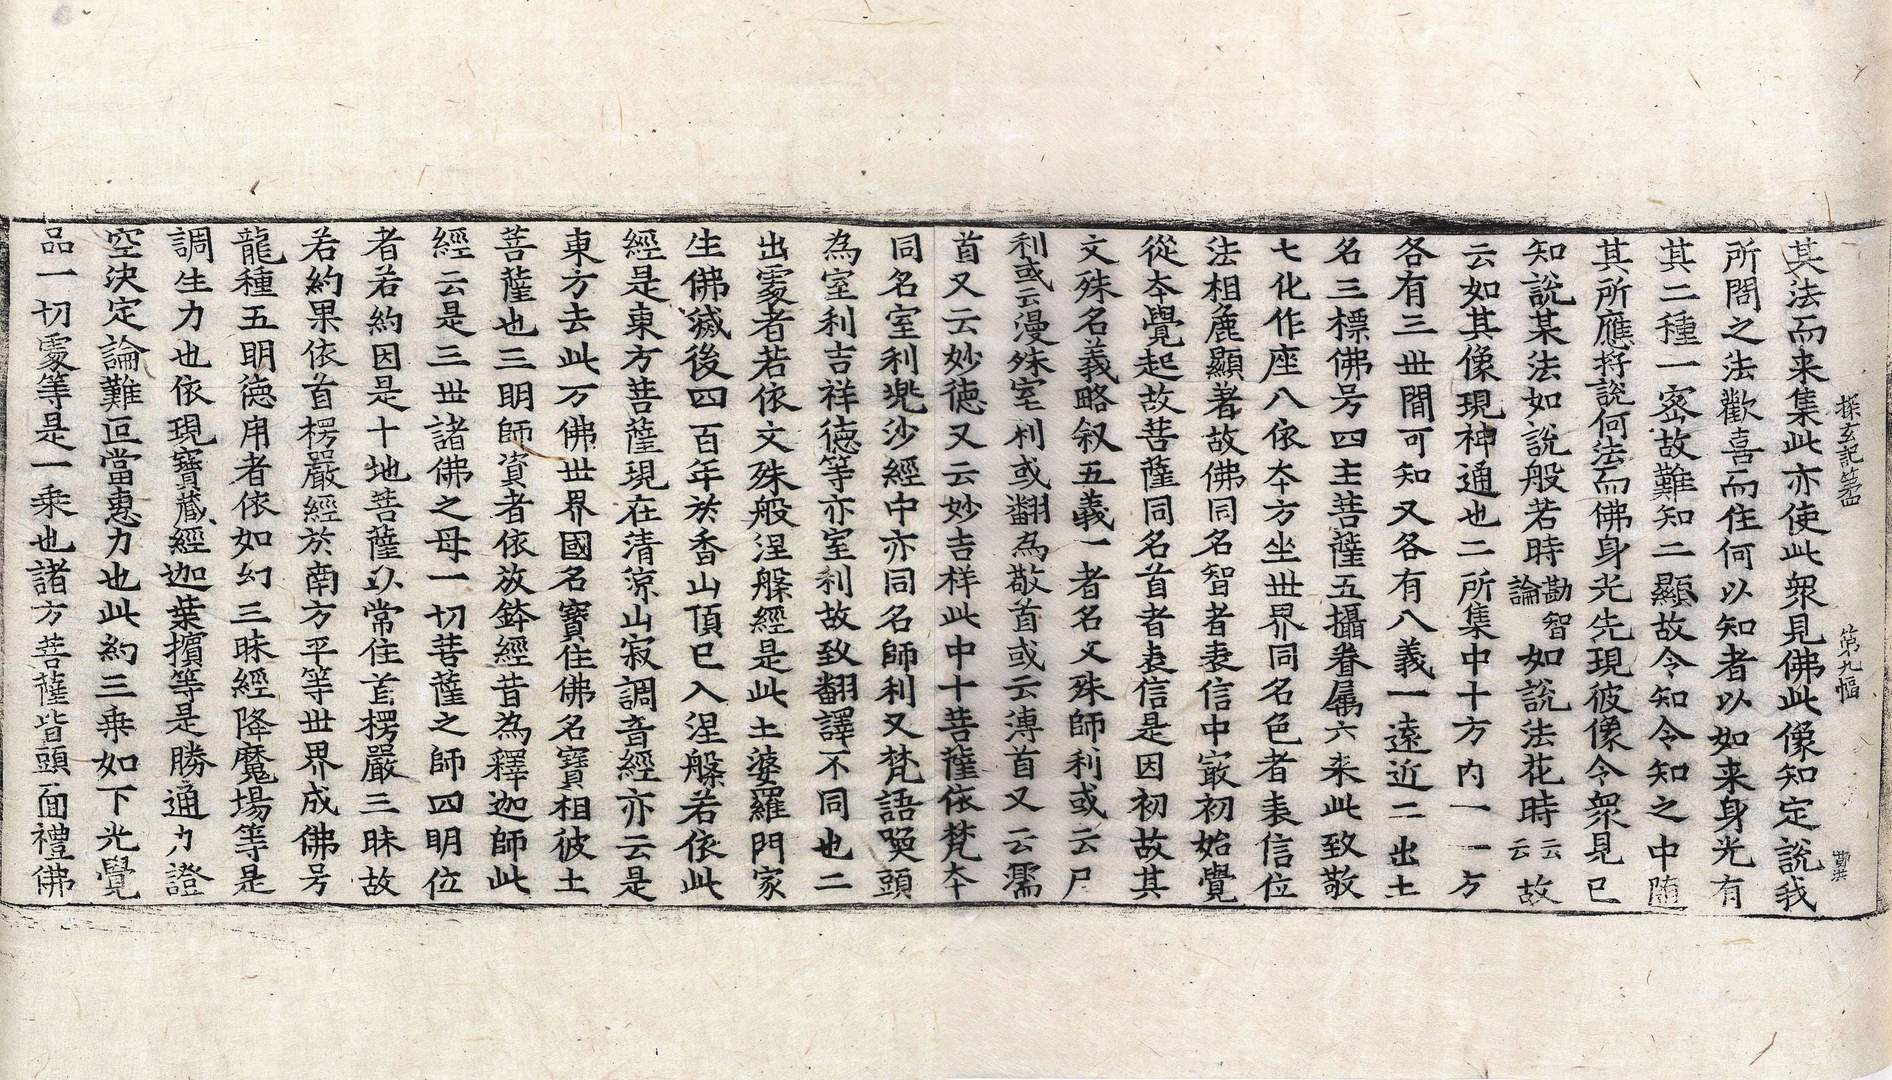 探玄記第四　第九幅
其法而来集此亦使此衆見佛此像知定說我
所問之法歡喜而住何以知者以如来身光有
其二種一密故難知二顯故令知令知之中随
其所應將說何法而佛身光先現彼像令衆見已
知說某法如說般若時勘智論如說法花時云云故
云如其像現神通也二所集中十方内一一方
各有三世間可知又各有八義一遠近二出土
名三標佛号四主菩薩五攝眷属六来此致敬
七化作座八依本方坐世界同名色者表信位
法相麁顯著故佛同名智者表信中宬初始覺
從本覺起故菩薩同名首者表信是因初故其
文殊名義略叙五義一者名文殊師利或云尸
利或云漫殊室利或翻為敬首或云溥首又云濡
首又云妙德又云妙吉样此中十菩薩依梵本
同名室利兠沙經中亦同名師利又梵語喚頭
為室利吉祥德等亦室利故致翻譯不同也二
出䖏者若依文殊般涅槃經是此土婆羅門家
生佛滅後四百年於香山頂已入涅槃若依此
經是東方菩薩現在清涼山寂調音經亦云是
東方去此万佛世界國名寶住佛名寶相彼土
菩薩也三明師資者依放鉢經昔為釋迦師此
經云是三世諸佛之母一切菩薩之師四明位
者若約因是十地菩薩以常住首楞嚴三昧故
若約果依首楞嚴經於南方平等世界成佛号
龍種五明德用者依如幻三昧經降魔場等是
調生力也依現寶藏經迦葉擯等是勝通力證
空決定論難叵當惠力也此約三乘如下光覺
品一切䖏等是一乘也諸方菩薩皆頭面禮佛